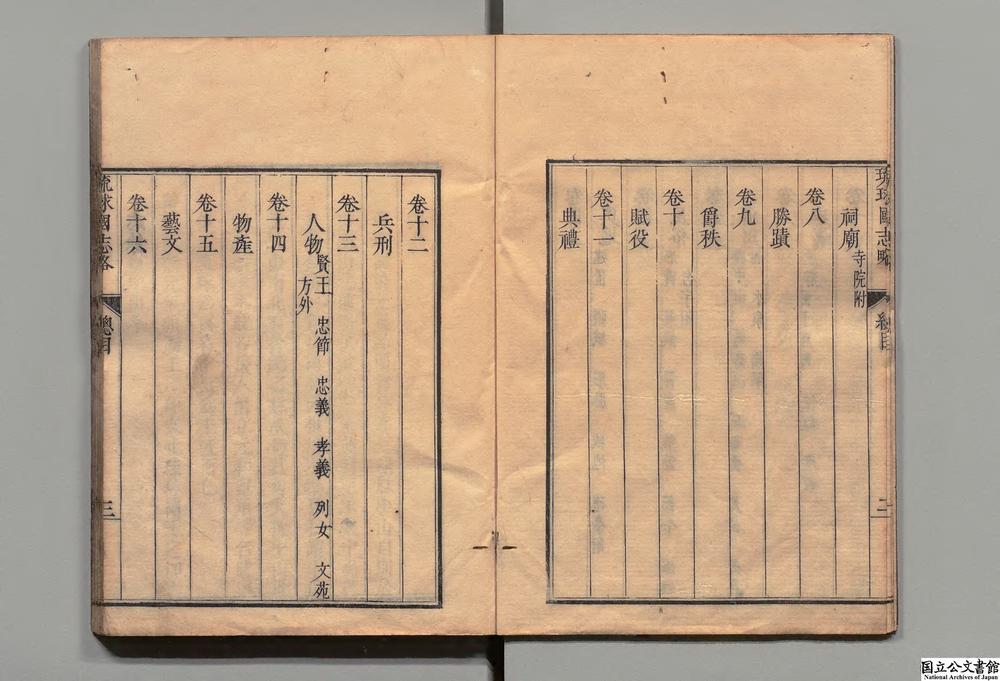 琉球國志略 總目 二
卷八
祠廟 寺院附
卷九
勝蹟
卷十
爵秩
賦役
卷十一
典禮
卷十二
兵刑
卷十三
人物 賢王 忠節 忠義 孝義 列女 文苑
方外
卷十四
物產
卷十五
藝文
卷十六
琉球國志略 總目 三
国立公文書館
National Archives of Japan